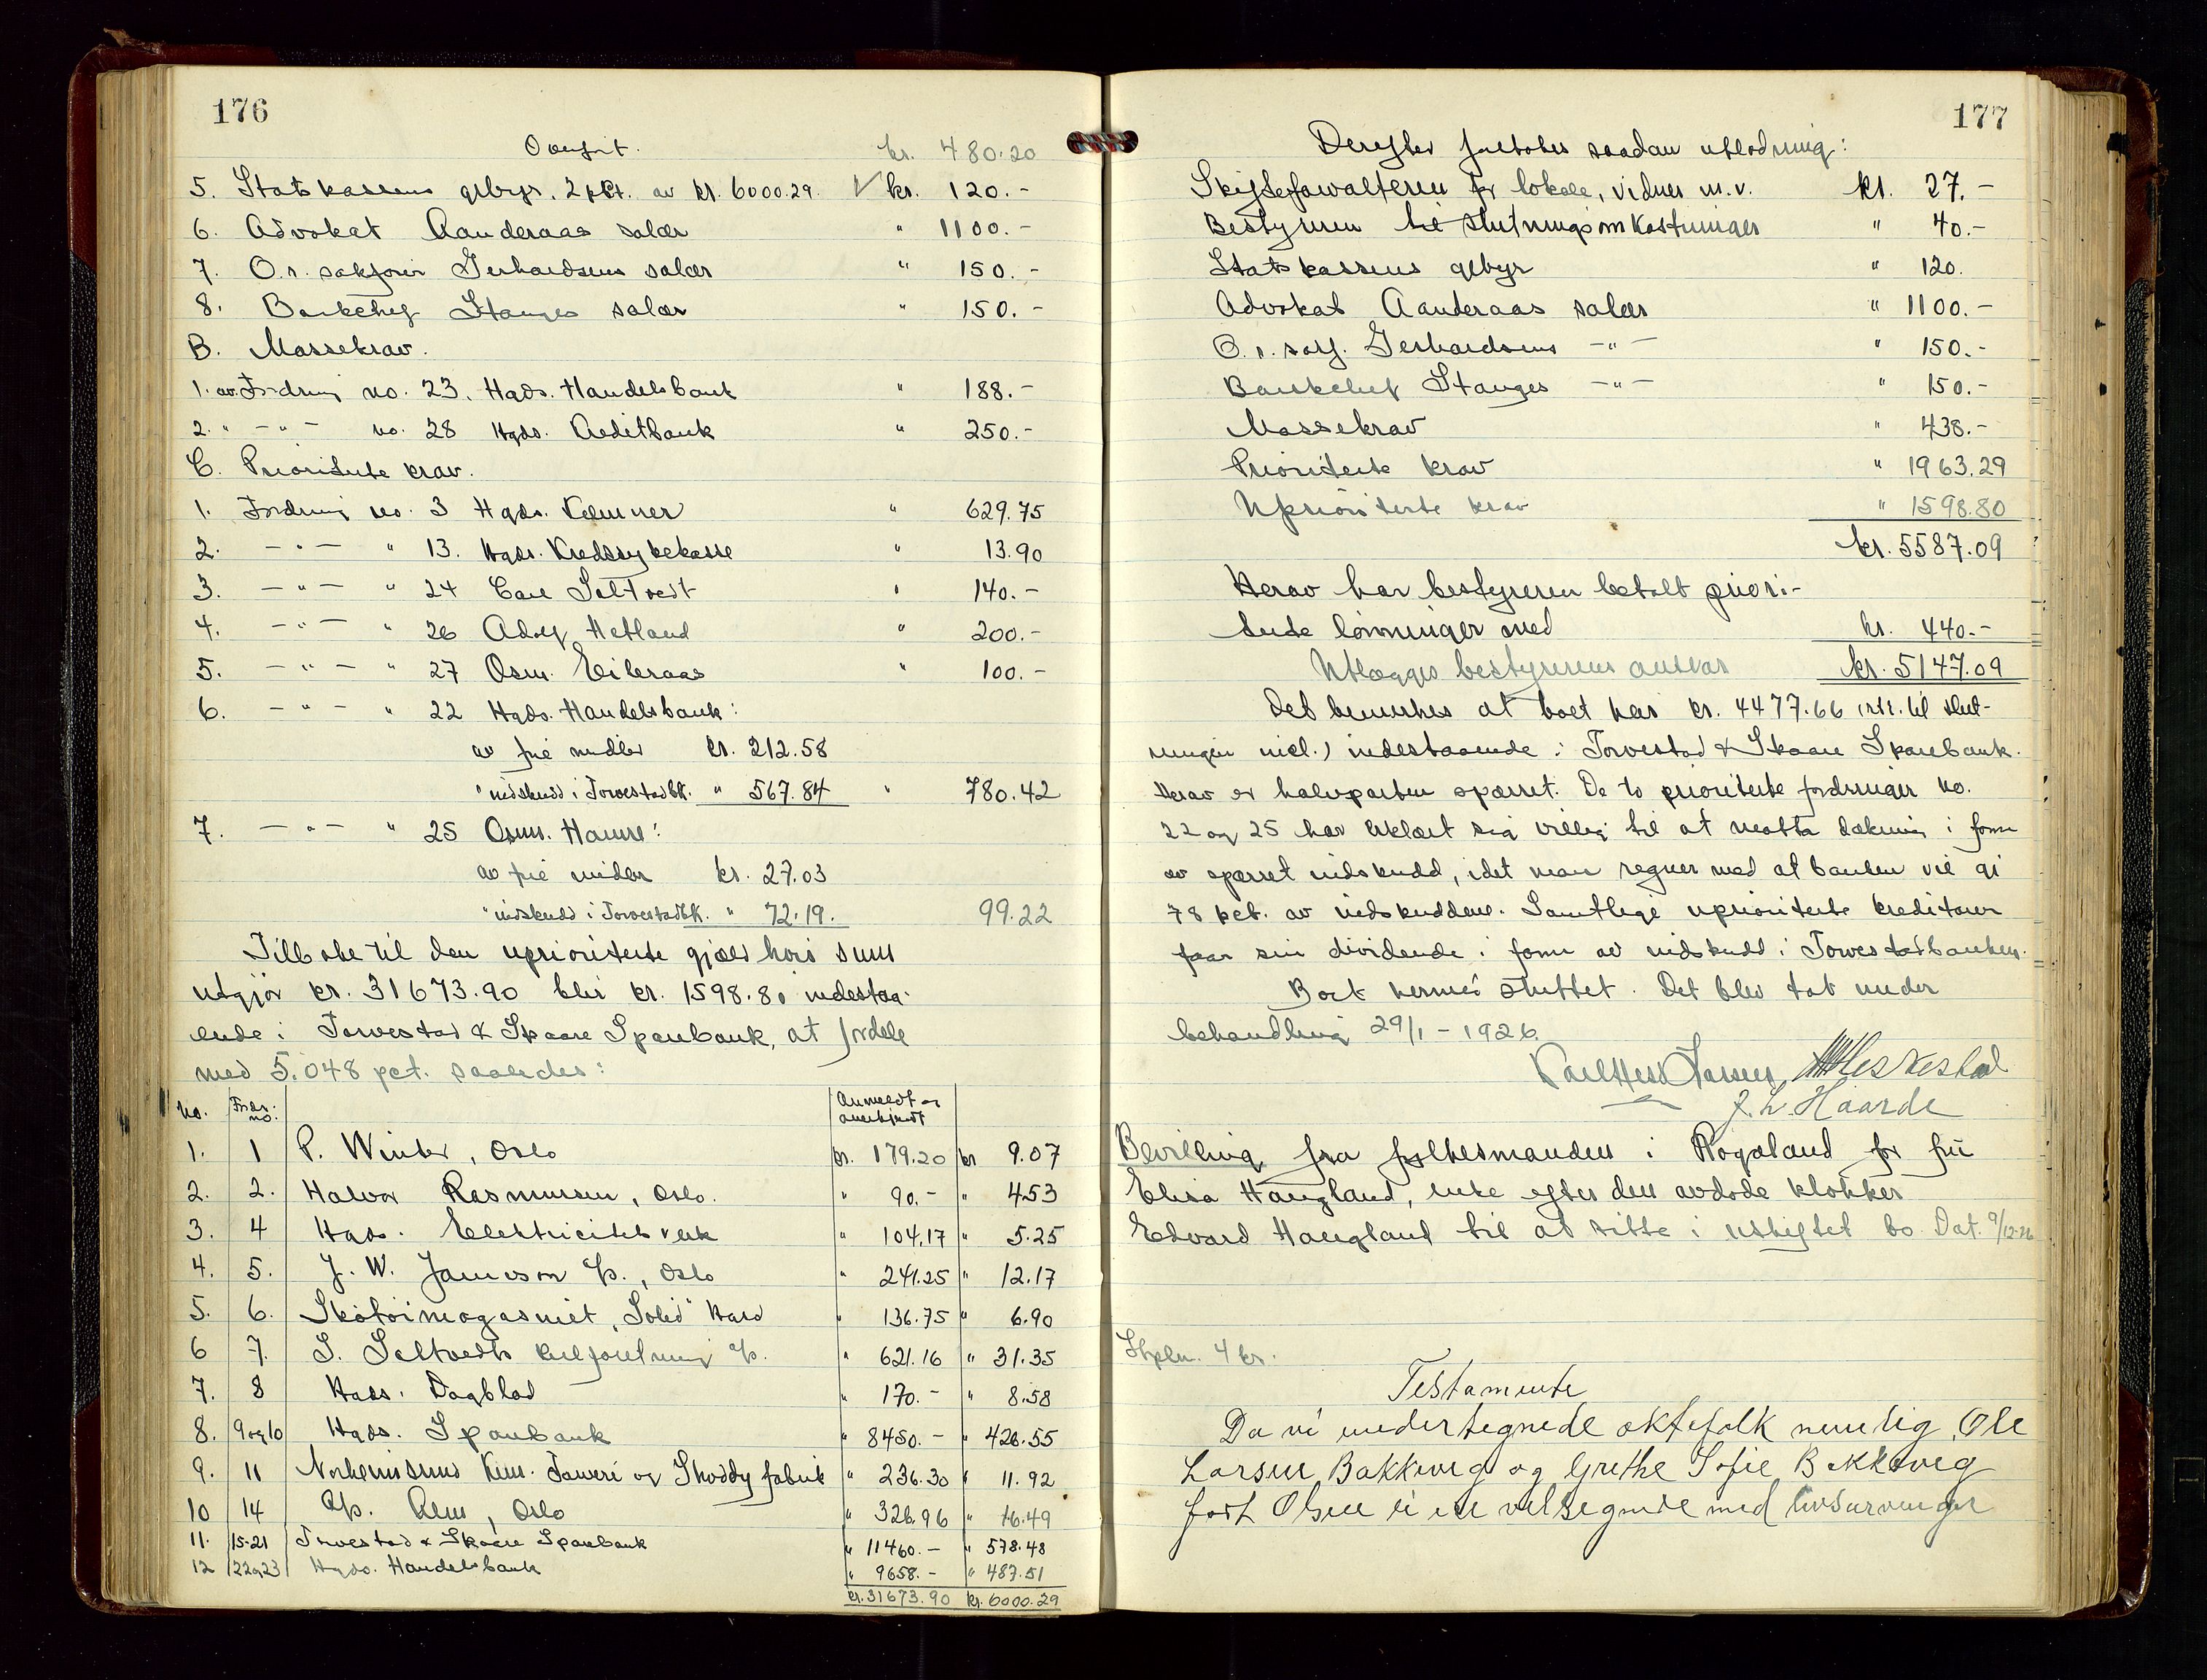 176
Overført. kr. 480.20
5. Statskassens gebyr. 2 pct. av kr. 6000.29. kr. 120.-
6. Advokat Aanderaas salær " 1100.-
7. O.r. sakfører Gerhardsens salær " 150.-
8. Bankchef Stanges salær " 150.-
B. Massekrav.
1. av Fordring no. 23. Hgds. Handelsbank " 188.-
2. " -"- no. 28 Hgds. Creditbank " 250.-
C. Prioriterte krav.
1. Fordring no. 3 Hgds. Kemner " 629.75
2. -"- " 13. Hgds. Kredssykekasse " 13.90
3. -"- " 24 Carl Saltvedt " 140.-
4. -"- " 26 Adolf Hetland " 200.-
5. -"- " 27 Osm. Eikeraas " 100.-
6. -"- " 22 Hgds. Handelsbank:
av frie midler kr. 212.58
" indskudd i Torvestadbk. " 567.84 " 780.42
7. -"- " 25 Osm. Hamre:
av frie midler kr. 27.03
" indskudd i Torvestadbk. " 72.19. 99.22
Tilbake til den uprioriterte gjæld hvis sum
utgjør kr. 31673.90 blir kr. 1598.80 indestaa-
ende i Torvestad & Skaare Sparebank, at fordele
med 5.048 pct. saaledes:
No. Fordr. no. Anmeldt og anerkjendt
1. 1 P. Winter, Oslo kr. 179.20 kr 9.07
2. 2. Halvor Rasmussen, Oslo. " 90.- " 4.53
3. 4 Hgds. Elektricitetsverk " 104.17 " 5.25
4. 5. J. W. Jameson A/s., Oslo " 241.25 " 12.17
5. 6. Skotøimagasinet "Solid" Hgsd " 136.75 " 6.90
6 7. S. Saltvedts kulforretning A/s. " 621.16 " 31.35
7. 8 Hgds. Dagblad " 170.- " 8.58
8. 9 og 10 Hgds. Sparebank " 8450.- " 426.55
9. 11 Norheimsund Kem. Farveri og Shoddyfabrik " 236.30 " 11.92
10 14 A/s. Alm, Oslo " 326.96 " 16.49
11. 15-21 Torvestad & Skaare Sparebank " 11460.- " 578.48
12 22og23 Hgds. Handelsbank " 9658.- " 487.51
kr. 31673.90 kr. 6000.29
177
Derefter foretokes saadan utlodning:
Skifteforvalteren for lokale, vidner m.v. kr. 27.-
Bestyreren til slutningsomkostninger " 40.-
Statskassens gebyr " 120.
Advokat Aanderaas salær " 1100.-
O.r. sakf. Gerhardsens -"- " 150.-
Bankchef Stanges -"- " 150.-
Massekrav " 438.-
Prioriterte krav " 1963.29
Uprioriterte krav " 1598.80
kr. 5587.09
Herav har bestyreren betalt priori-
terte lønninger med kr. 440.-
Utlægges bestyrerens ansvar kr. 5147.09
Det bemerkes at boet har kr. 4477.66 (rtr. til slut-
ningen incl.) indestaaende i Torvestad & Skaare Sparebank.
Herav er halvparten sparret. De to prioriterte fordringer no.
22 og 25 har erklært sig villig til at motta dækning i form
av sparret indskudd, idet man regner med at banken vil gi
78 pct. av indskuddene. Samtlige uprioriterte kreditorer
faar sin dividende i form av indskudd i Torvestadbanken.
Boet hermed sluttet. Det blev tat under
behandling 29/1-1926.
Heskestad
J. L. Haarde
Bevilling fra fylkesmanden i Rogaland for fru
Elisa Haugland, enke efter den avdøde klokker
Edvard Haugland til at sitte i uskiftet bo. Dat. 9/12-26
Stplm. 4 kr.
Testamente
Da vi undertegnede ektefolk nemlig Ole
Larsen Bakkevig og Grethe Sofie Bakkevig
født Olsen ei er velsignede med livsarvinger